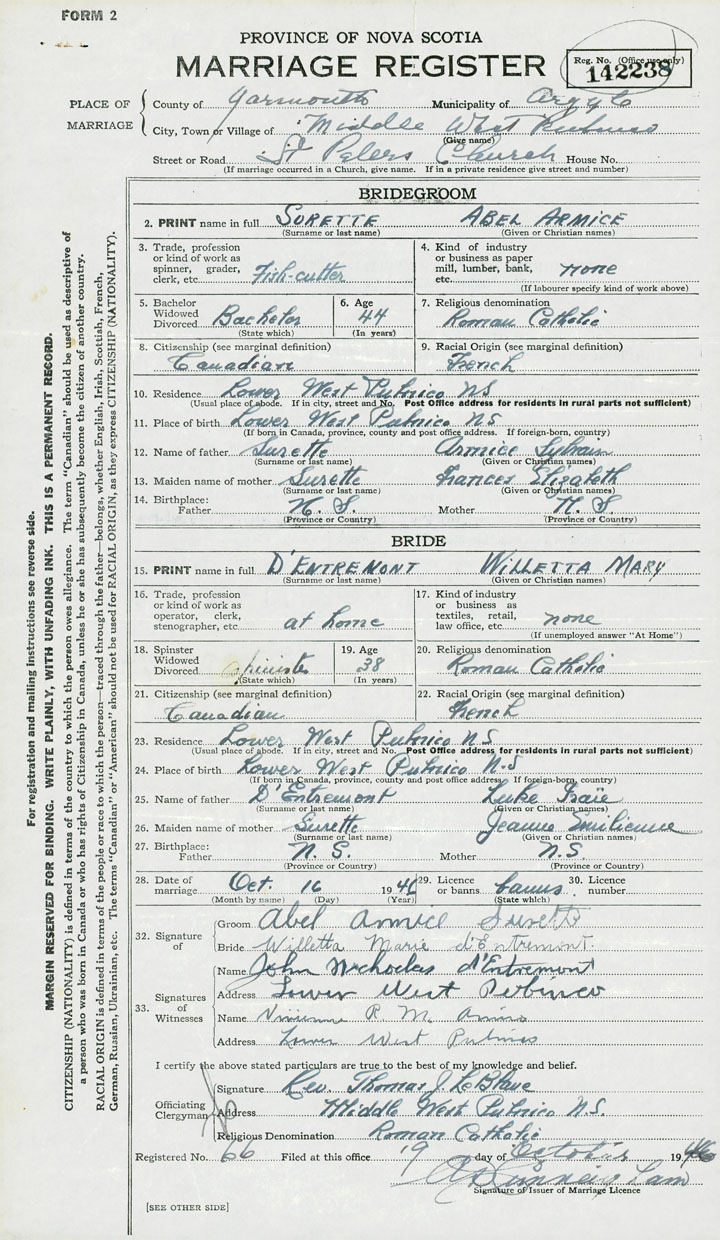 FORM 2
PROVINCE OF NOVA SCOTIA
MARRIAGE REGISTER
Reg. No. (Office use only)
142238
PLACE OF MARRIAGE
County of Yarmouth Municipality of Argyle
City, Town or Village of Middle West Pubnico
(Give name)
Street or Road St Peters Church House No.
(If marriage occurred in a Church, give name. If in a private residence give street and number)
BRIDEGROOM
2. PRINT name in full SURETTE ABEL ARMICE
(Surname or last name) (Given or Christian names)
3. Trade, profession or kind of work as spinner, grader, clerk, etc. Fish-cutter
4. Kind of industry or business as paper mill, lumber, bank, etc. none
(If labourer specify kind of work above)
5. Bachelor Widowed Divorced Bachelor (State which)
6. Age 44 (In years)
7. Religious denomination Roman Catholic
8. Citizenship (see marginal definition) Canadian
9. Racial Origin (see marginal definition) French
10. Residence Lower West Pubnico NS
(Usual place of abode. If in city, street and No. Post Office address for residents in rural parts not sufficient)
11. Place of birth Lower West Pubnico NS
(If born in Canada, province, county and post office address. If foreign-born, country)
12. Name of father Surette Armice Sylvain
(Surname or last name) (Given or Christian names)
13. Maiden name of mother Surette Frances Elizabeth
(Surname or last name) (Given or Christian names)
14. Birthplace: Father N. S. Mother N. S.
(Province or Country) (Province or Country)
BRIDE
15. PRINT name in full D'ENTREMONT WILLETTA MARY
(Surname or last name) (Given or Christian names)
16. Trade, profession or kind of work as operator, clerk, stenographer, etc. at home
17. Kind of industry or business as textiles, retail, law office, etc. none
(If unemployed answer "At Home")
18. Spinster Widowed Divorced spinster (State which)
19. Age 38 (In years)
20. Religious denomination Roman Catholic
21. Citizenship (see marginal definition) Canadian
22. Racial Origin (see marginal definition) French
23. Residence Lower West Pubnico NS
(Usual place of abode. If in city, street and No. Post Office address for residents in rural parts not sufficient)
24. Place of birth Lower West Pubnico N.S
(If born in Canada, province, county and post office address. If foreign-born, country)
25. Name of father D'Entremont Luke Isaïe
(Surname or last name) (Given or Christian names)
26. Maiden name of mother Surette Jeanne Emilienne
(Surname or last name) (Given or Christian names)
27. Birthplace: Father N. S. Mother N.S.
(Province or Country) (Province or Country)
28. Date of marriage Oct. 16 1946 29. Licence or banns banns 30. Licence number
(Month by name) (Day) (Year) (State which)
32. Signature of
Groom Abel Armice Surette
Bride Willetta Marie d'Entremont.
33. Signatures of Witnesses
Name John Nicholas d'Entremont
Address Lower West Pubnico
Name R. M.
Address Lower West Pubnico
I certify the above stated particulars are true to the best of my knowledge and belief.
Officiating Clergyman
Signature Rev. Thomas J. LeBlanc
Address Middle West Pubnico N.S.
Religious Denomination Roman Catholic
Registered No. 66 Filed at this office 19 day of October 1946
Signature of Issuer of Marriage Licence
[SEE OTHER SIDE]
For registration and mailing instructions see reverse side.
MARGIN RESERVED FOR BINDING. WRITE PLAINLY, WITH UNFADING INK. THIS IS A PERMANENT RECORD.
CITIZENSHIP (NATIONALITY) is defined in terms of the country to which the person owes allegiance. The term "Canadian" should be used as descriptive of
a person who was born in Canada or who has rights of Citizenship in Canada, unless he or she has subsequently become the citizen of another country.
RACIAL ORIGIN is defined in terms of the people or race to which the person—traced through the father—belongs, whether English, Irish, Scottish, French,
German, Russian, Ukrainian, etc. The terms "Canadian" or "American" should not be used for RACIAL ORIGIN, as they express CITIZENSHIP (NATIONALITY).